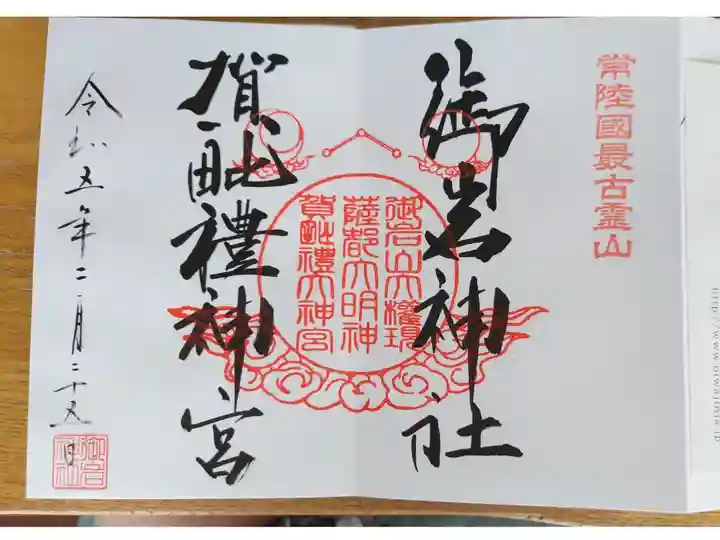 常陸國最古霊山
御岩神社
御岩山大權現
薩都大明神
賀毗禮大神宮
賀毗禮神宮
令和五年二月二十五日
御岩
神社